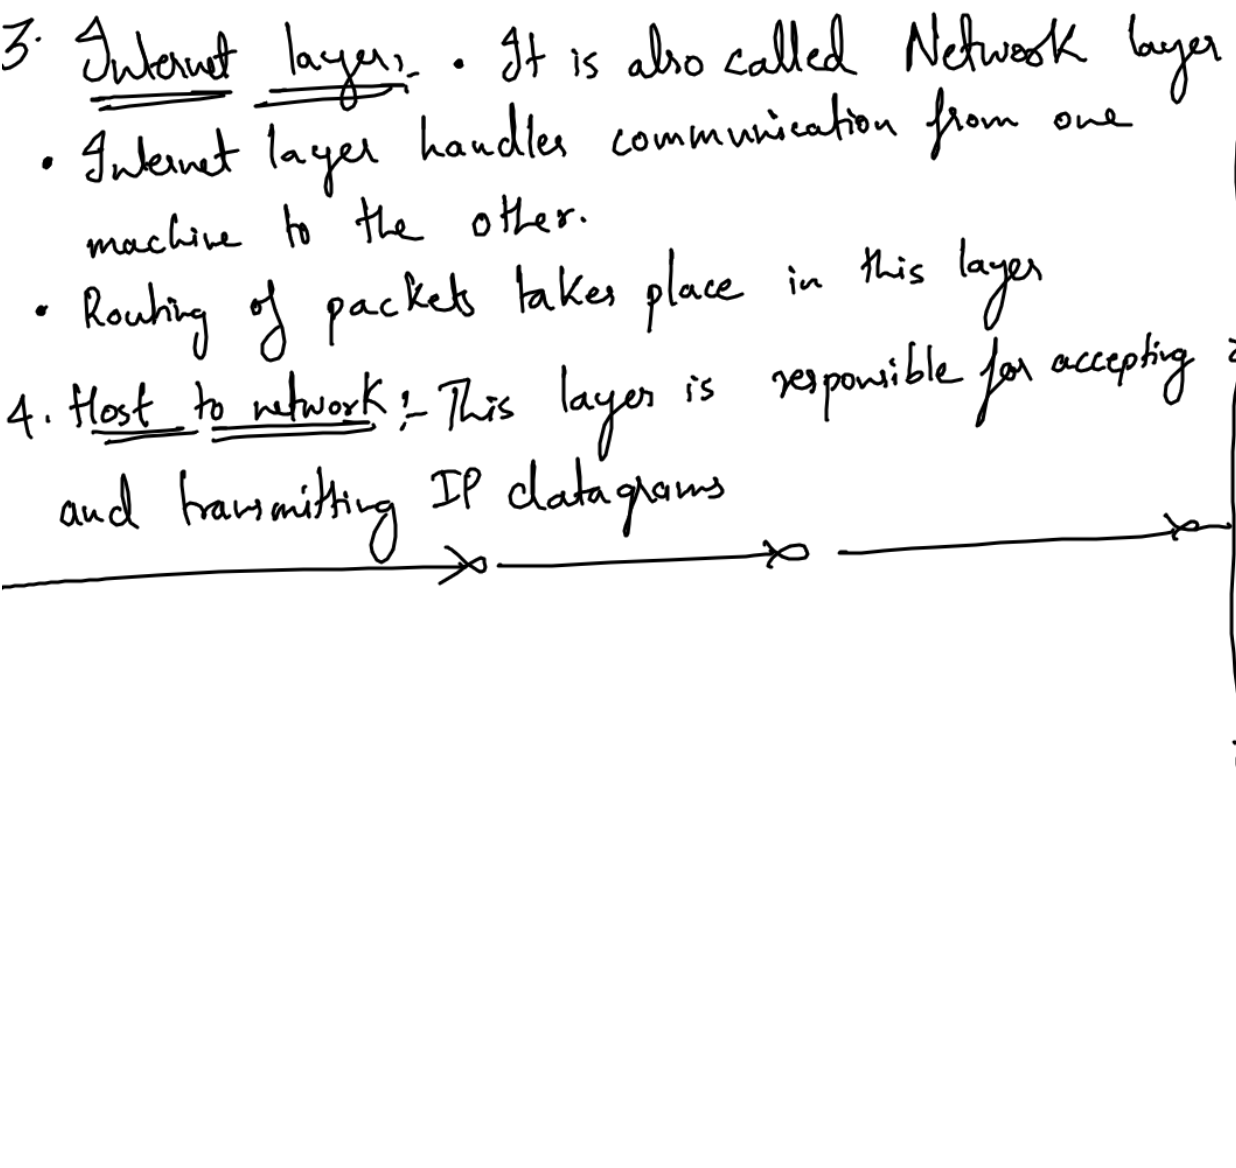 3. Internet layer:- • It is also called Network layer
• Internet layer handles communication from one
machine to the other.
• Routing of packets takes place in this layer
4. Host to network :- This layer is responsible for accepting
and transmitting IP datagrams